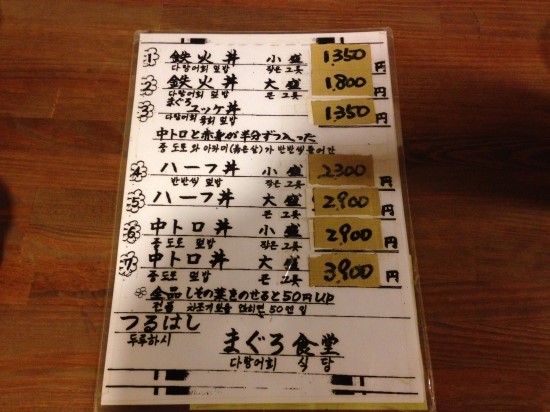 1 鉄火丼 小盛 1,350円
다랑어회 덮밥 작은 그릇
2 鉄火丼 大盛 1,800円
다랑어회 덮밥 큰 그릇
3 まぐろユッケ丼 1,350円
다랑어 육회 덮밥
中トロと赤身が半分ずつ入った
중 도로 와 아카미(붉은살)가 반반씩 들어간
4 ハーフ丼 小盛 2300円
반반씩 덮밥 작은 그릇
5 ハーフ丼 大盛 2,900円
큰 그릇
6 中トロ丼 小盛 2,900円
중 도로 덮밥 작은 그릇
7 中トロ丼 大盛 3,900円
중 도로 덮밥 큰 그릇
全品しその葉をのせると50円UP
전품 차조기잎을 얹히면 50엔 업
つるはし
두루하시
まぐろ食堂
다랑어회 식당